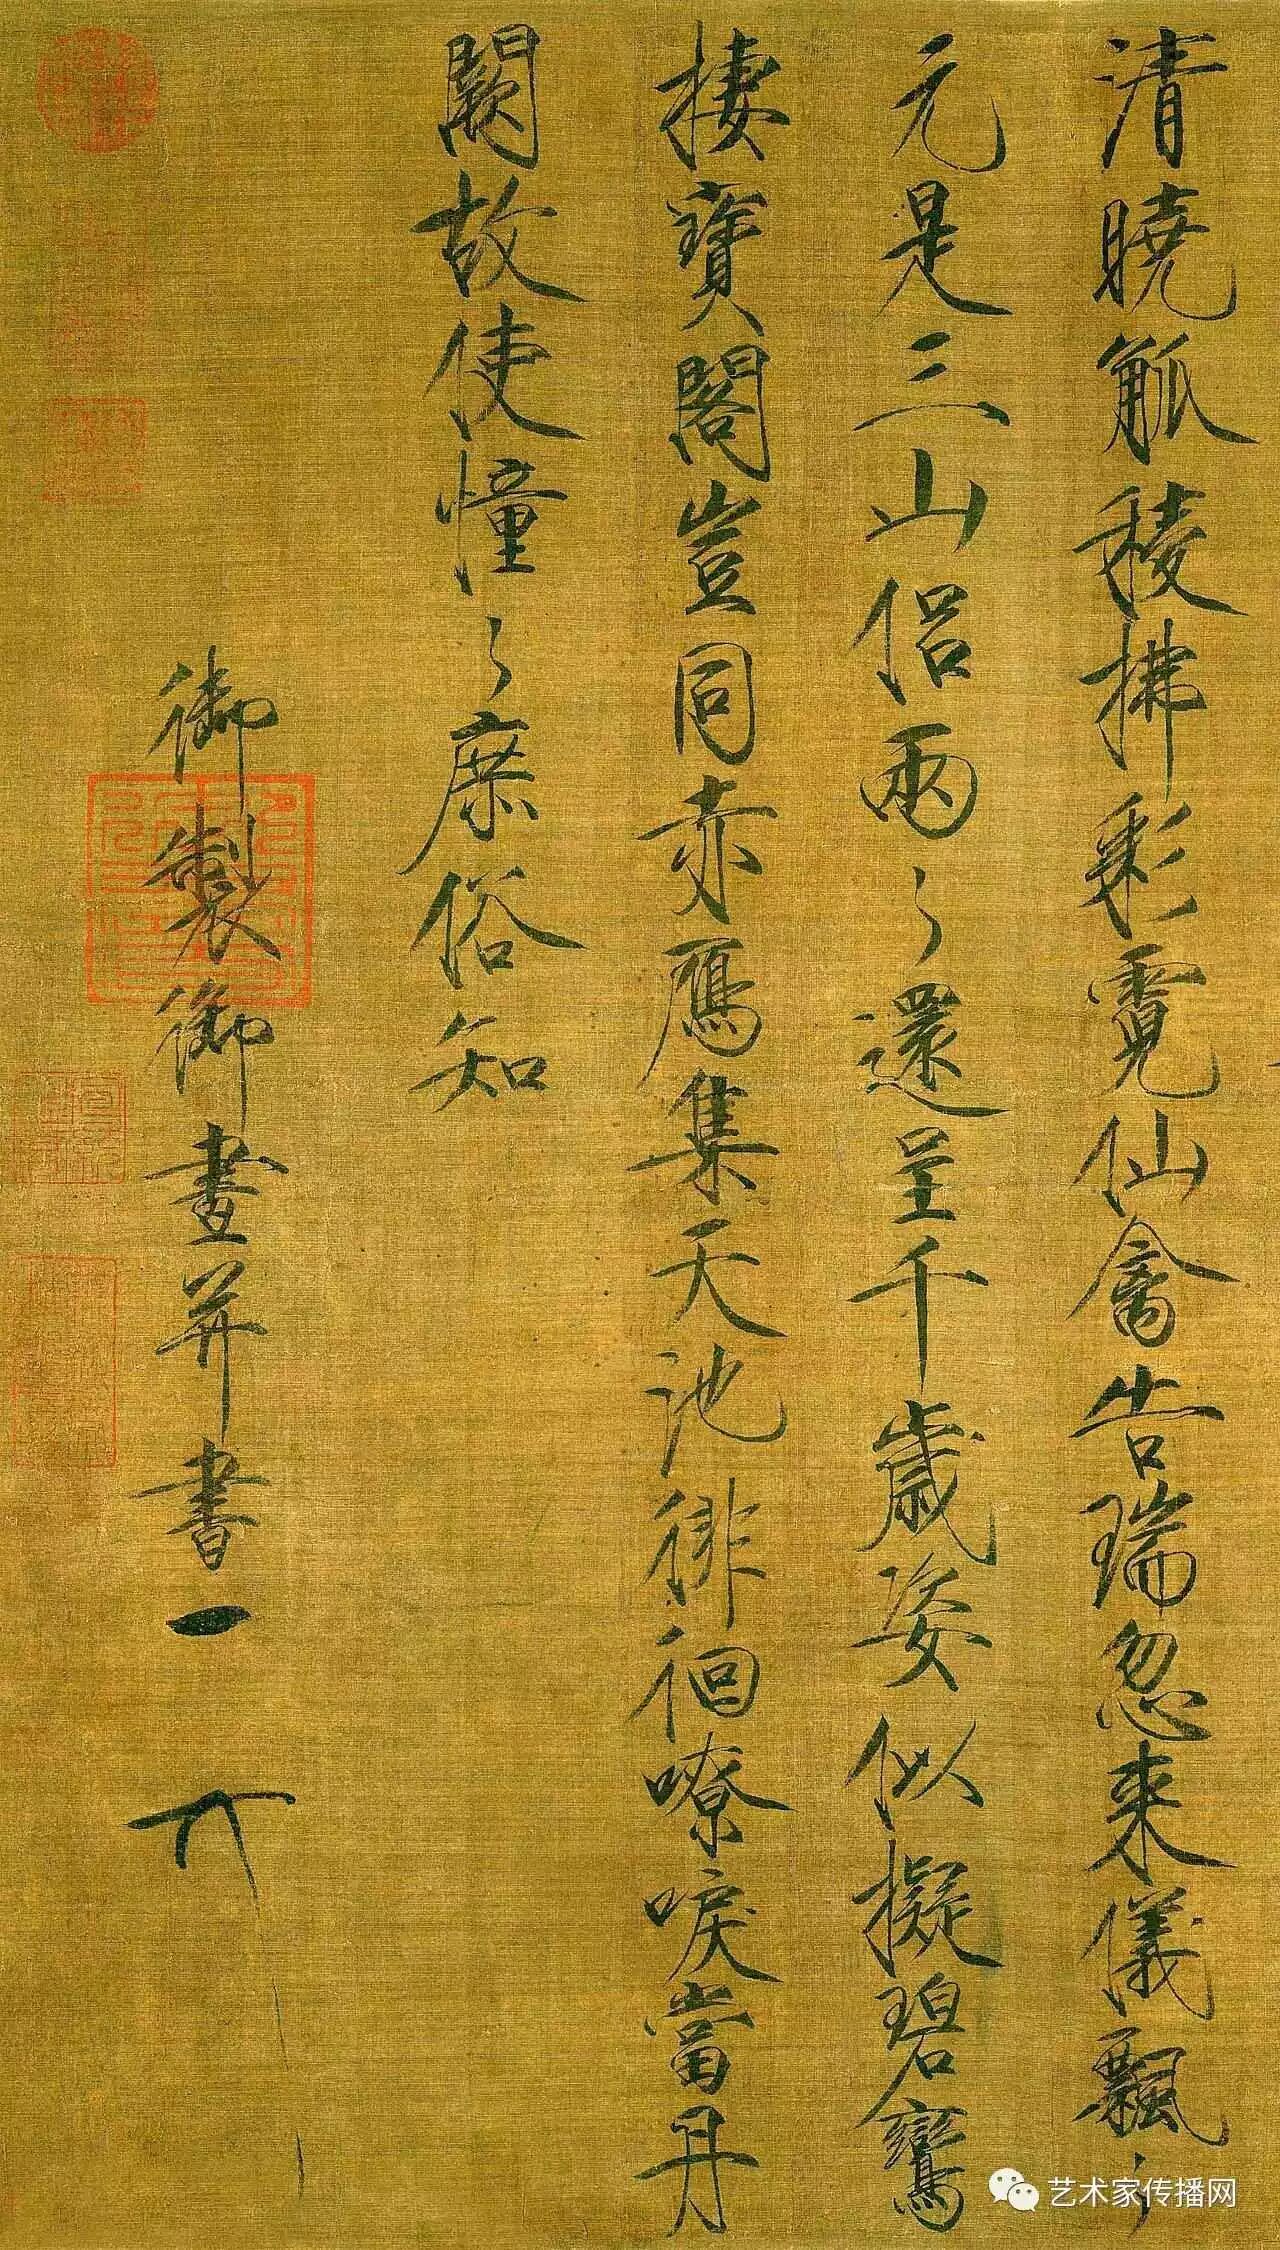 清曉觚稜拂彩霓仙禽告瑞忽来儀飄〻
元是三山侣兩〻還呈千歲姿似擬碧鸞
棲寶閣豈同赤鴈集天池徘徊嘹唳當丹
闕故使憧〻庶俗知
御製御畫并書
艺术家传播网